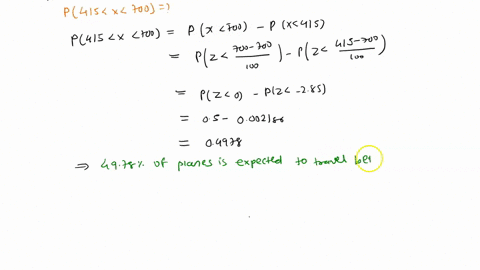 P(415 < x < 700) = ?
P(415 < x < 700) = P(x < 700) - P(x < 415)
= P(Z < 700-700/100) - P(Z < 415-700/100)
= P(Z < 0) - P(Z < -2.85)
= 0.5 - 0.002186
= 0.4978
⇒ 49.78% of planes is expected to travel bet